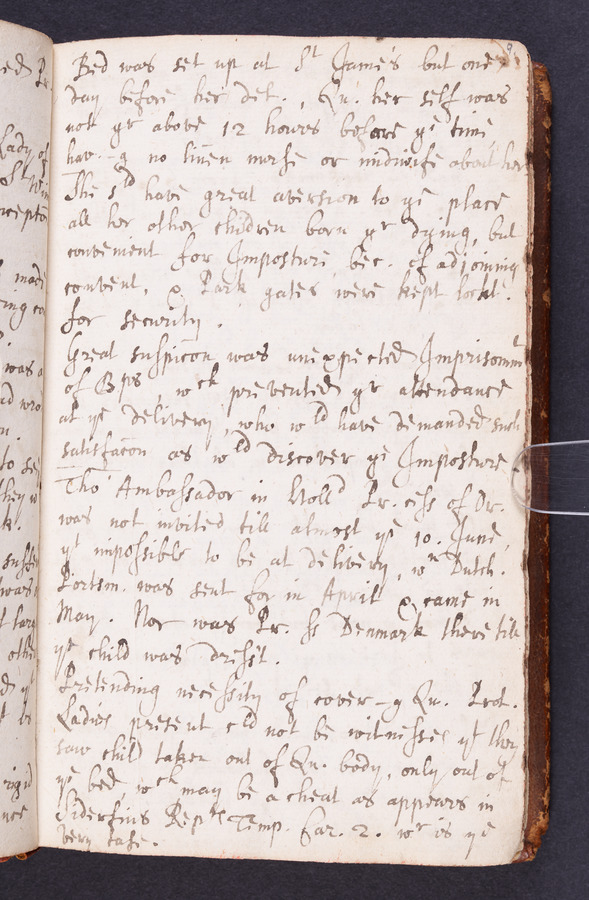 Bed was set up at St James but one
day before her del., Qu. her self was
not yr above 12 howrs before ye time
hav-g no linen nurse or midwife about her
She sd have great aversion to ye place
all her other children born yr dying, but
convenient for Imposture, bec. of adjoining
convent, & Park gates were kept lockt.
for security.
Great suspicon was unexpected Imprisonmt
of Bps, wch prevented yr attendance
at ye delivery, who wld have demanded such
satisfacon as wld discover ye Imposture
Tho' Ambassador in Holld Pr.cess of Or.
was not invited till almost ye 10. June,
yt impossible to be at delivery, wn Dutch.
Portsm. was sent for in April & came in
May. Nor was Pr. ss Denmark there till
ye child was drest.
Pretending necessity of cover-g Qu. Prot.
Ladies present cld not be witnesses yt they
saw child taken out of Qu. body, only out of
ye bed, wch may be a cheat as appears in
Siderfins Repts Temp. Car. 2. wr is ye
very case.
ed Pr
Lady of